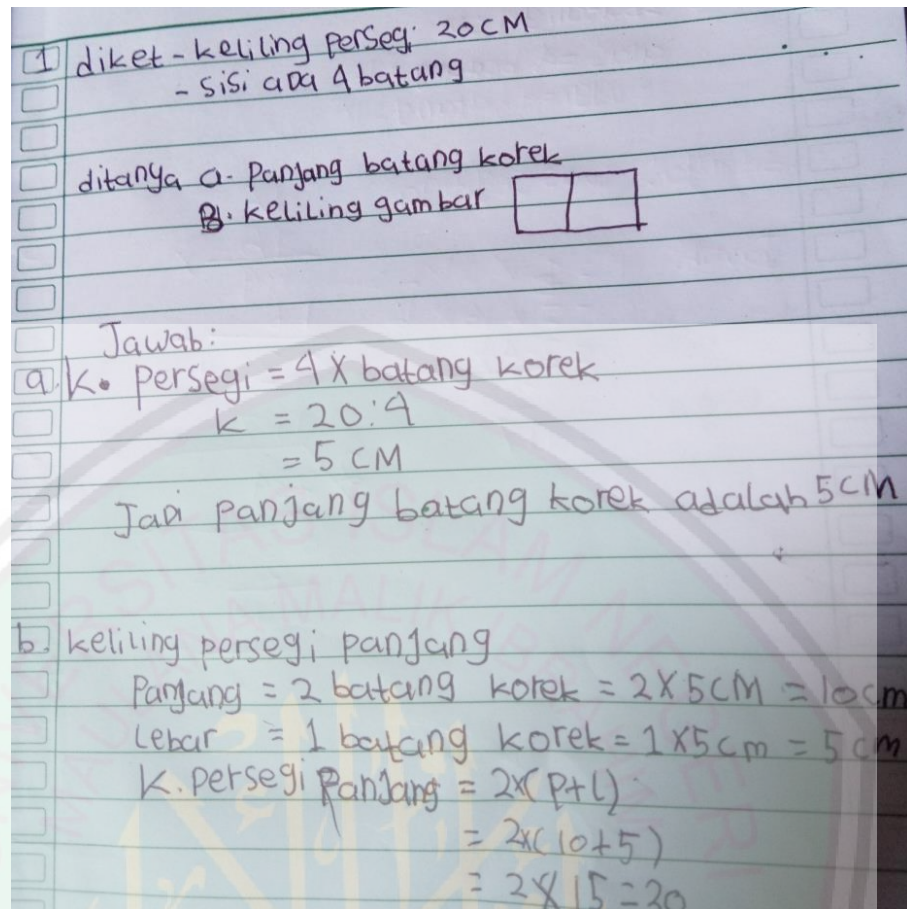 1 diket - keliling persegi 20 CM
- sisi ada 4 batang
ditanya a. Panjang batang korek
B. keliling gambar
Jawab:
a. K. persegi = 4 x batang korek
k = 20:4
= 5 CM
Jadi panjang batang korek adalah 5 CM
b. keliling persegi panjang
Panjang = 2 batang korek = 2 x 5 CM = 10 cm
Lebar = 1 batang korek = 1 x 5 cm = 5 cm
K. persegi Panjang = 2x(p+l)
= 2x(10+5)
= 2 x 15 = 30